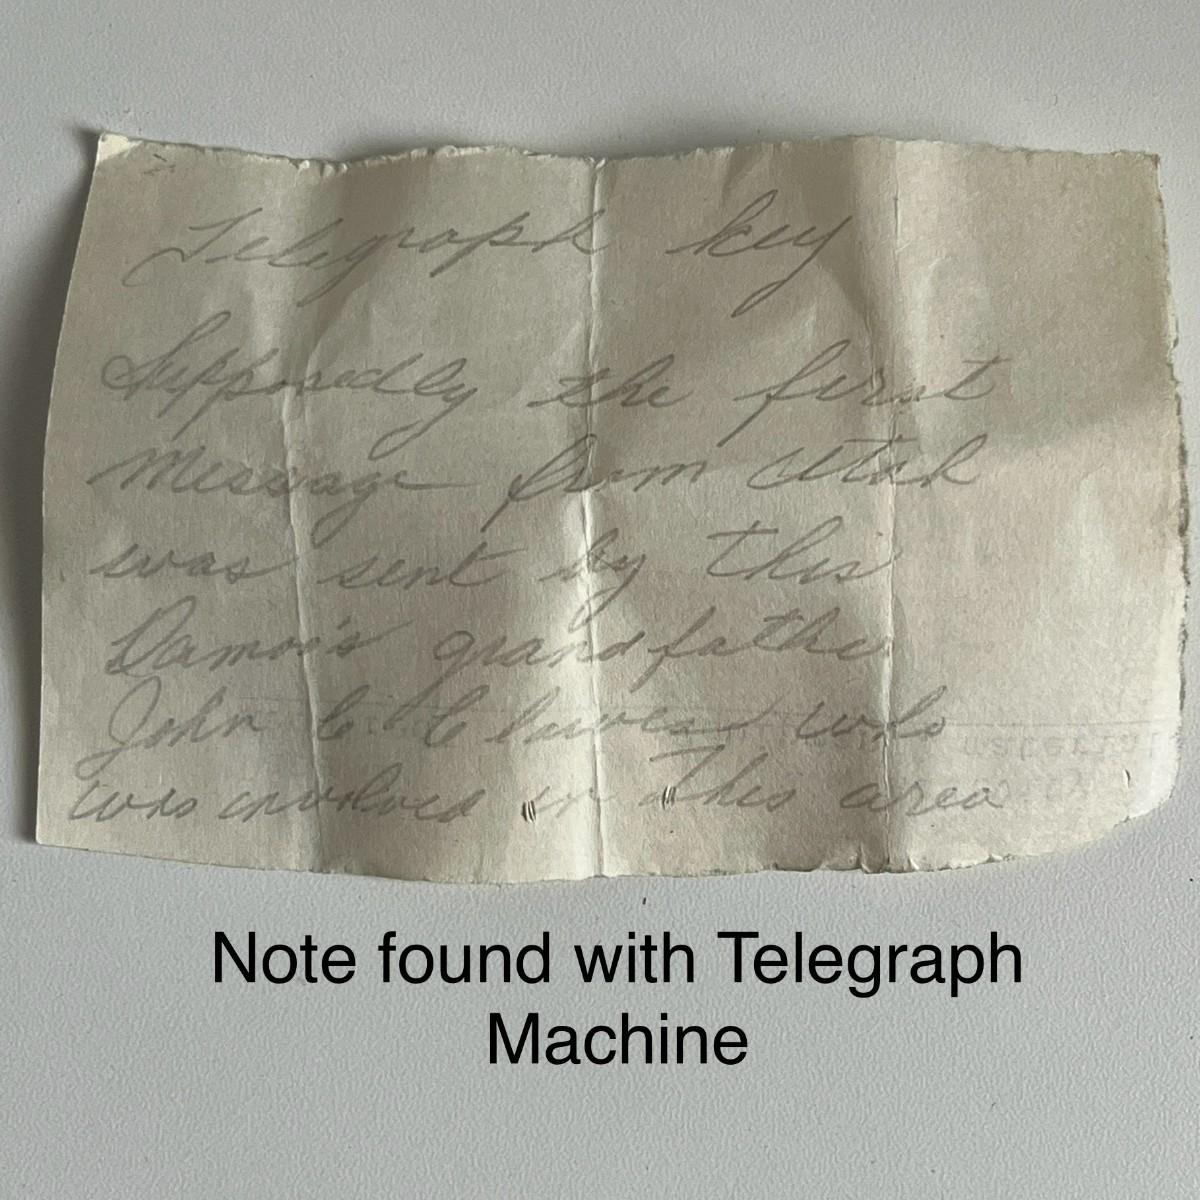 Telegraph key
Supposedly the first
Message from Utah
was sent by this
grandfather
John C who
was involved in this area
Note found with Telegraph
Machine